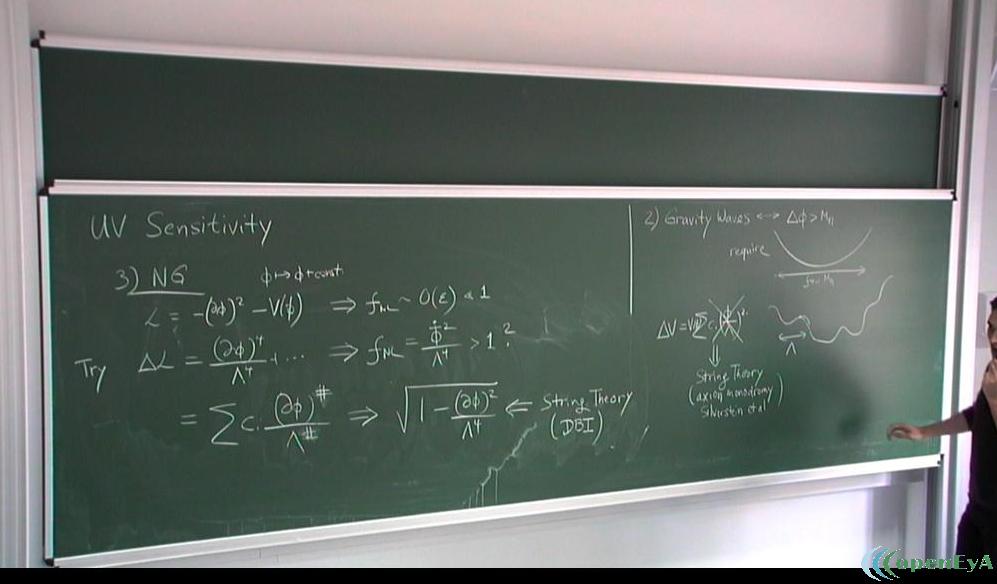 UV Sensitivity
3) NG φ ↦ φ + const
ℒ = -(∂φ)² - V(φ) ⇒ f_NL ~ O(ε) < 1
Try Δℒ = (∂φ)⁴/Λ⁴ + ... ⇒ f_NL = φ̇²/Λ⁴ > 1 ?
= Σ cᵢ (∂φ)^#/Λ^# ⇒ √(1 - (∂φ)²/Λ⁴) ⇐ String Theory
(DBI)
2) Gravity Waves ↔ Δφ > M_Pl
require
Λ
⇓
String Theory
(axion monodromy
Silverstein et al)
openEyA